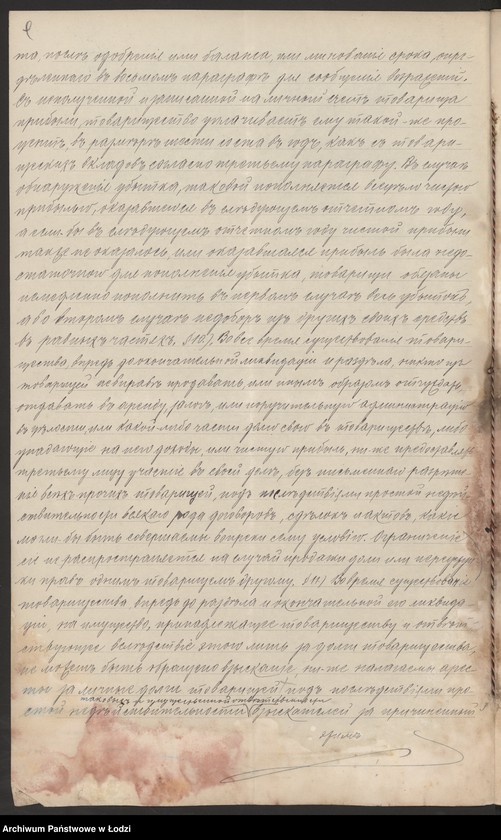 та, послѣ одобренія или баланса, или минованія срока, опре-
дѣленнаго въ восьмомъ параграфѣ для сообщенія возраженій.
Въ исполученной и записанной на личный счетъ товарища
прибыли, товарищество уплачиваетъ ему такой-же про-
центъ, въ размѣрѣ шести со ста въ годъ, какъ съ товари-
щескихъ вкладовъ согласно третьему параграфу. Въ случаѣ
обнаруженія убытка, таковой пополняется всецѣло чистою
прибылью, оказавшеюся въ слѣдующемъ отчетномъ году,
а если бы въ слѣдующемъ отчетномъ году чистой прибыли
также не оказалось, или оказавшаяся прибыль была недо-
статочною для пополненія убытка, товарищи обязаны
немедленно пополнить въ первомъ случаѣ весь убытокъ,
а во второмъ случаѣ недоборъ изъ другихъ своихъ средствъ
въ равныхъ частяхъ. Во все время существованія товари-
щества, впредь до окончательной ликвидаціи и раздѣла, никто изъ
товарищей не вправѣ продавать или инымъ образомъ отчуждать,
отдавать въ аренду, залогъ, или поручительную администрацію
въ цѣлости, или какой-либо части долю свою въ товариществѣ, либо
упадающіе на него доходы, или чистую прибыль, ни-же предоставлять
третьему лицу участіе въ своей доли, безъ письменнаго разрѣше-
нія всѣхъ прочихъ товарищей, подъ послѣдствіями простой недѣй-
ствительности всякаго рода договоровъ, сдѣлокъ и актовъ, какіе
могли бы быть совершаемы вопреки сему условію. Ограниченіе
сіе не распространяется на случай продажи доли или переуступ-
ки правъ однимъ товарищемъ другому. Во время существованія
товарищества, впредь до раздѣла и окончательной его ликвида-
ціи, на имущество, принадлежащее товариществу и отвѣт-
ствующее вслѣдствіе этого лишь за долги товарищества,
не можетъ быть обращено взысканіе, ни-же налагаемы арес-
ты за личные долги товарищей подъ послѣдствіями про-
таковыхъ и имущественной отвѣтственности
стой недѣйствительности взыскателей за причиненный